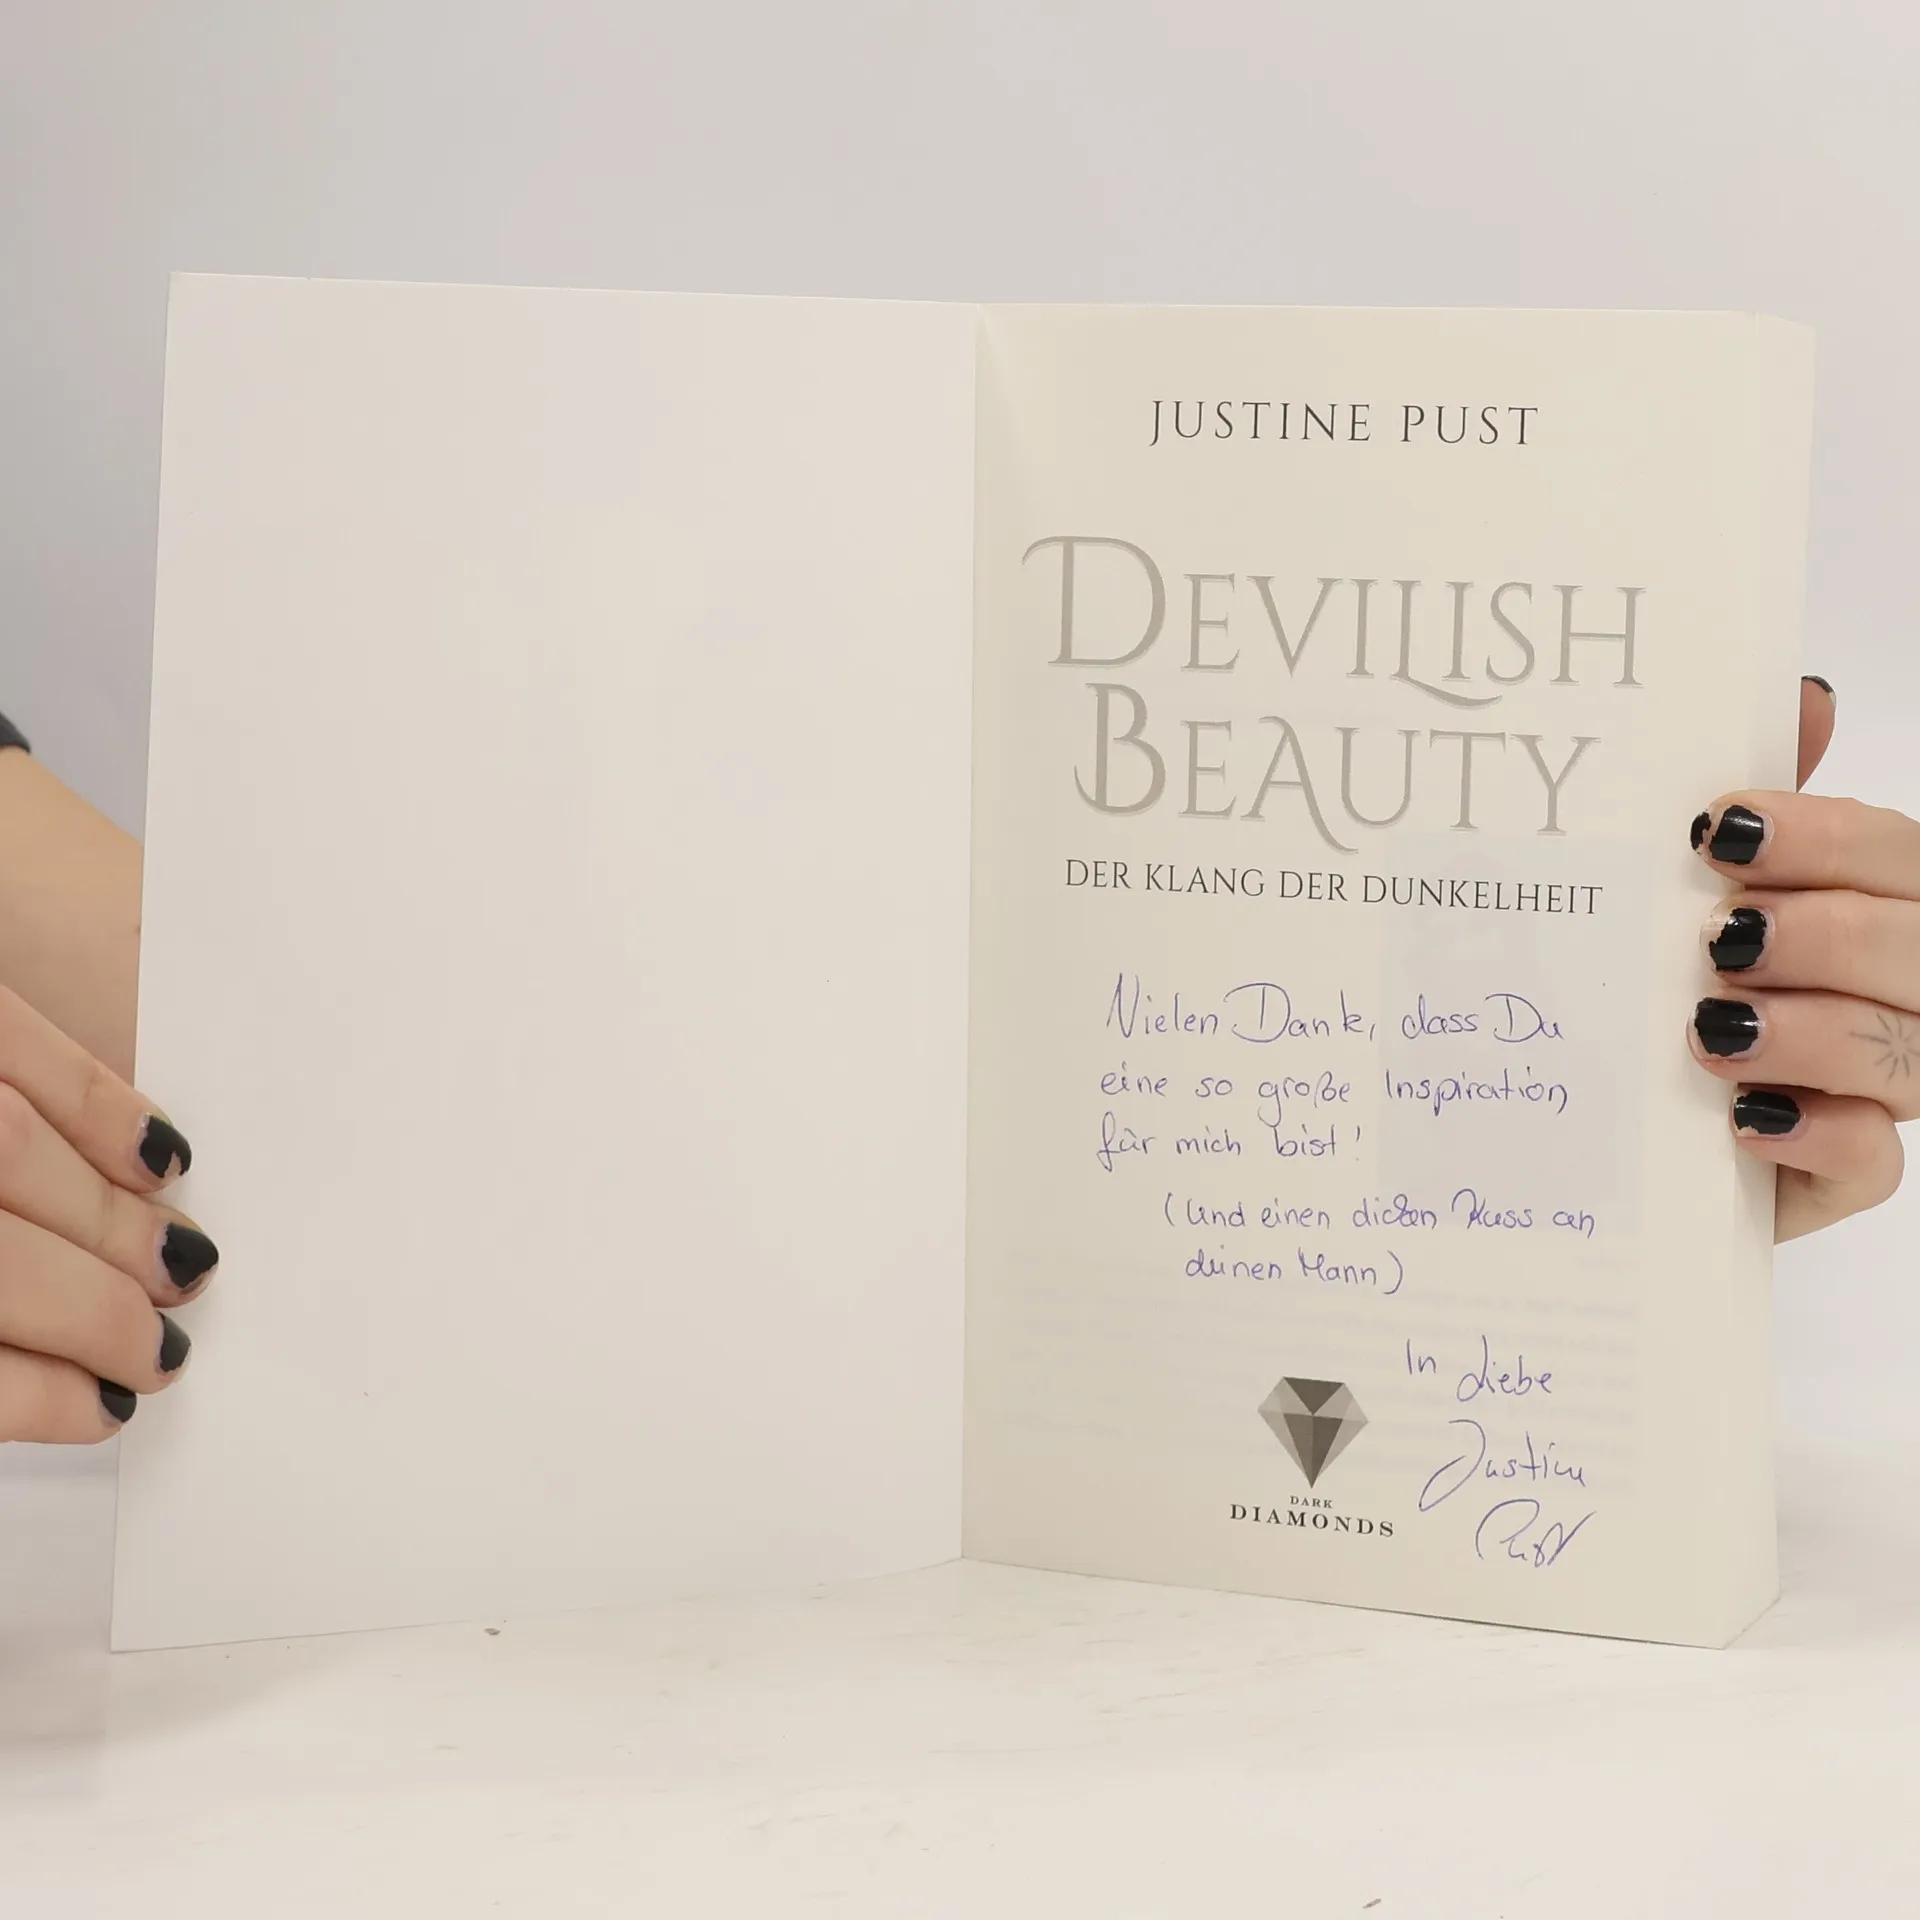 JUSTINE PUST
DEVILISH
BEAUTY
DER KLANG DER DUNKELHEIT
Vielen Dank, dass Du
eine so große Inspiration
für mich bist!
(Und einen dicken Kuss an
deinen Mann)
In Liebe
Justine
Pust
DARK
DIAMONDS